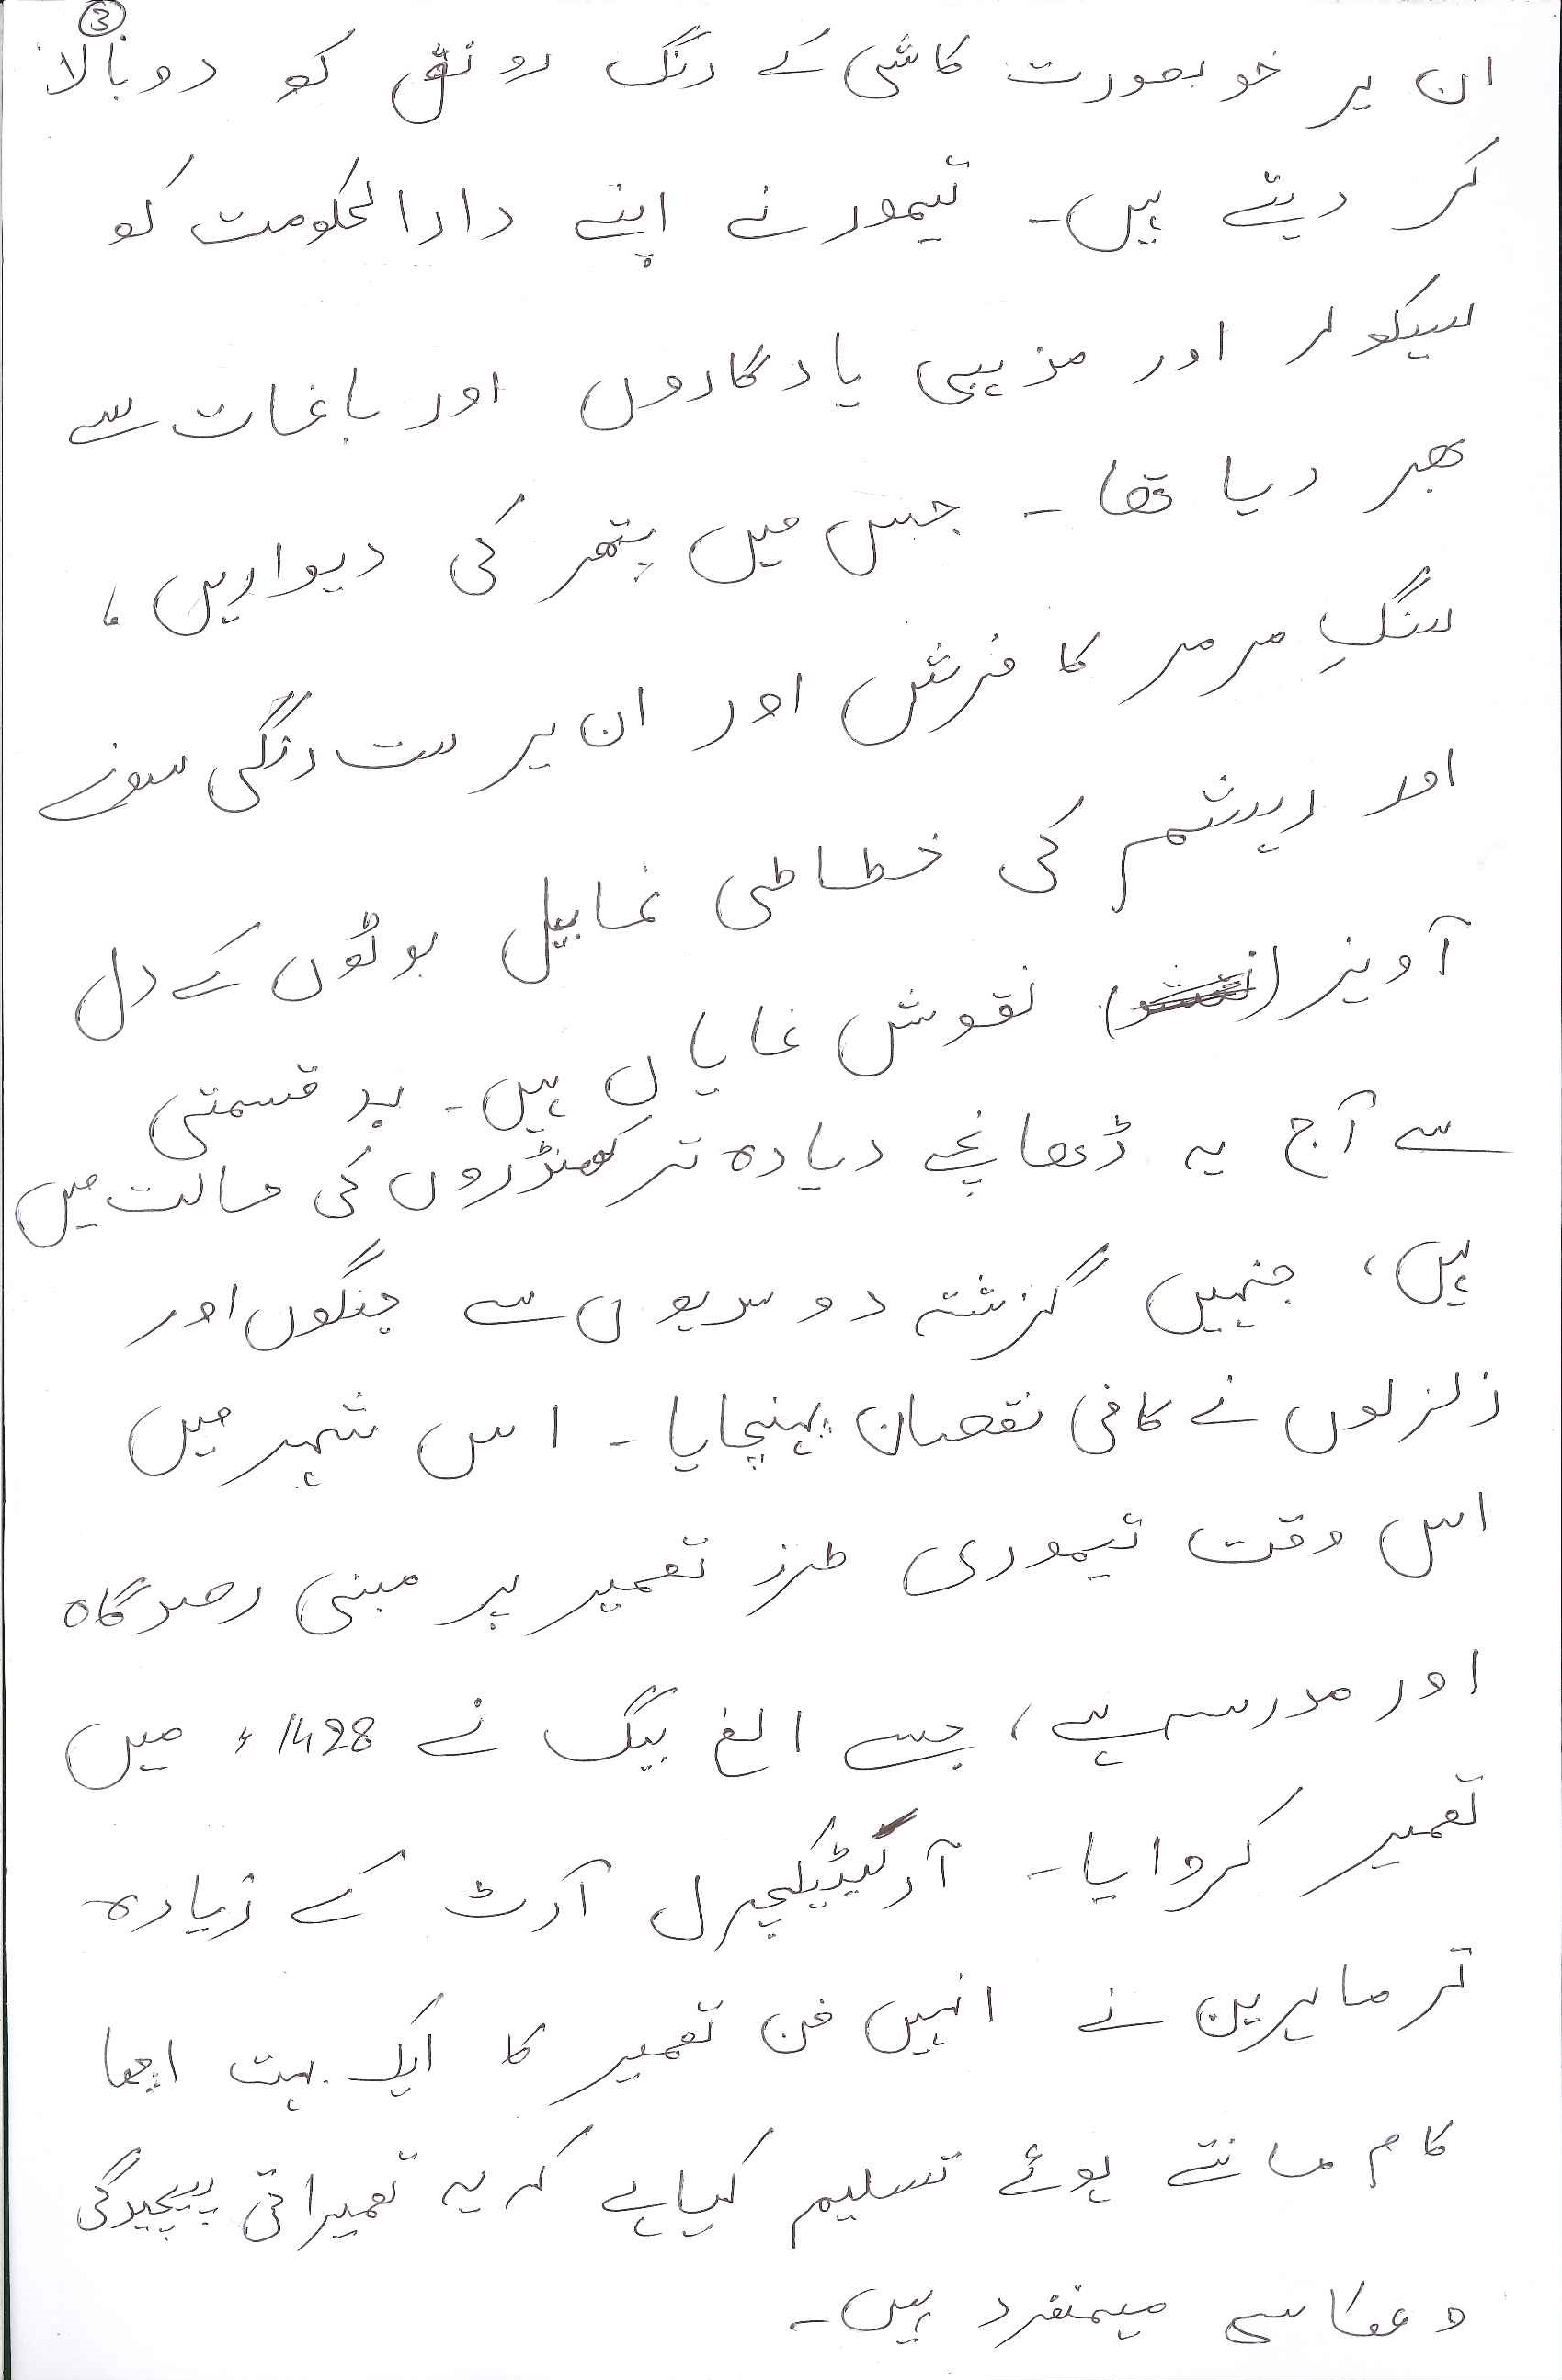 ③
ان پر خوبصورت کاشی کے رنگ رونق کو دوبالا
کر دیتے ہیں۔ تیمور نے اپنے دارالحکومت کو
سیکولر اور مذہبی یادگاروں اور باغات سے
بھر دیا تھا۔ جس میں پتھر کی دیواریں،
سنگِ مرمر کا فرش اور ان پر ست رنگی سونے
اور ریشم کی خطاطی نما بیل بوٹوں کے دل
آویز () نقوش نمایاں ہیں۔ بد قسمتی
سے آج یہ ڈھانچے دیادہ تر کھنڈروں کی حالت میں
ہیں، جنہیں گزشتہ دو سدیوں سے جنگوں اور
زلزلوں نے کافی نقصان پہنچایا۔ اس شہر میں
اس وقت تیموری طرز تعمیر پر مبنی رصدگاہ
اور مدرسہ ہے، جسے الغ بیگ نے 1428ء میں
تعمیر کروایا۔ آرکیٹیکچرل آرٹ کے زیادہ
تر ماہرین نے انہیں فن تعمیر کا ایک بہت اچھا
کام مانتے ہوئے تسلیم کیا ہے کہ یہ تعمیراتی پیچیدگی
و عکاسی میمنفرد ہیں۔